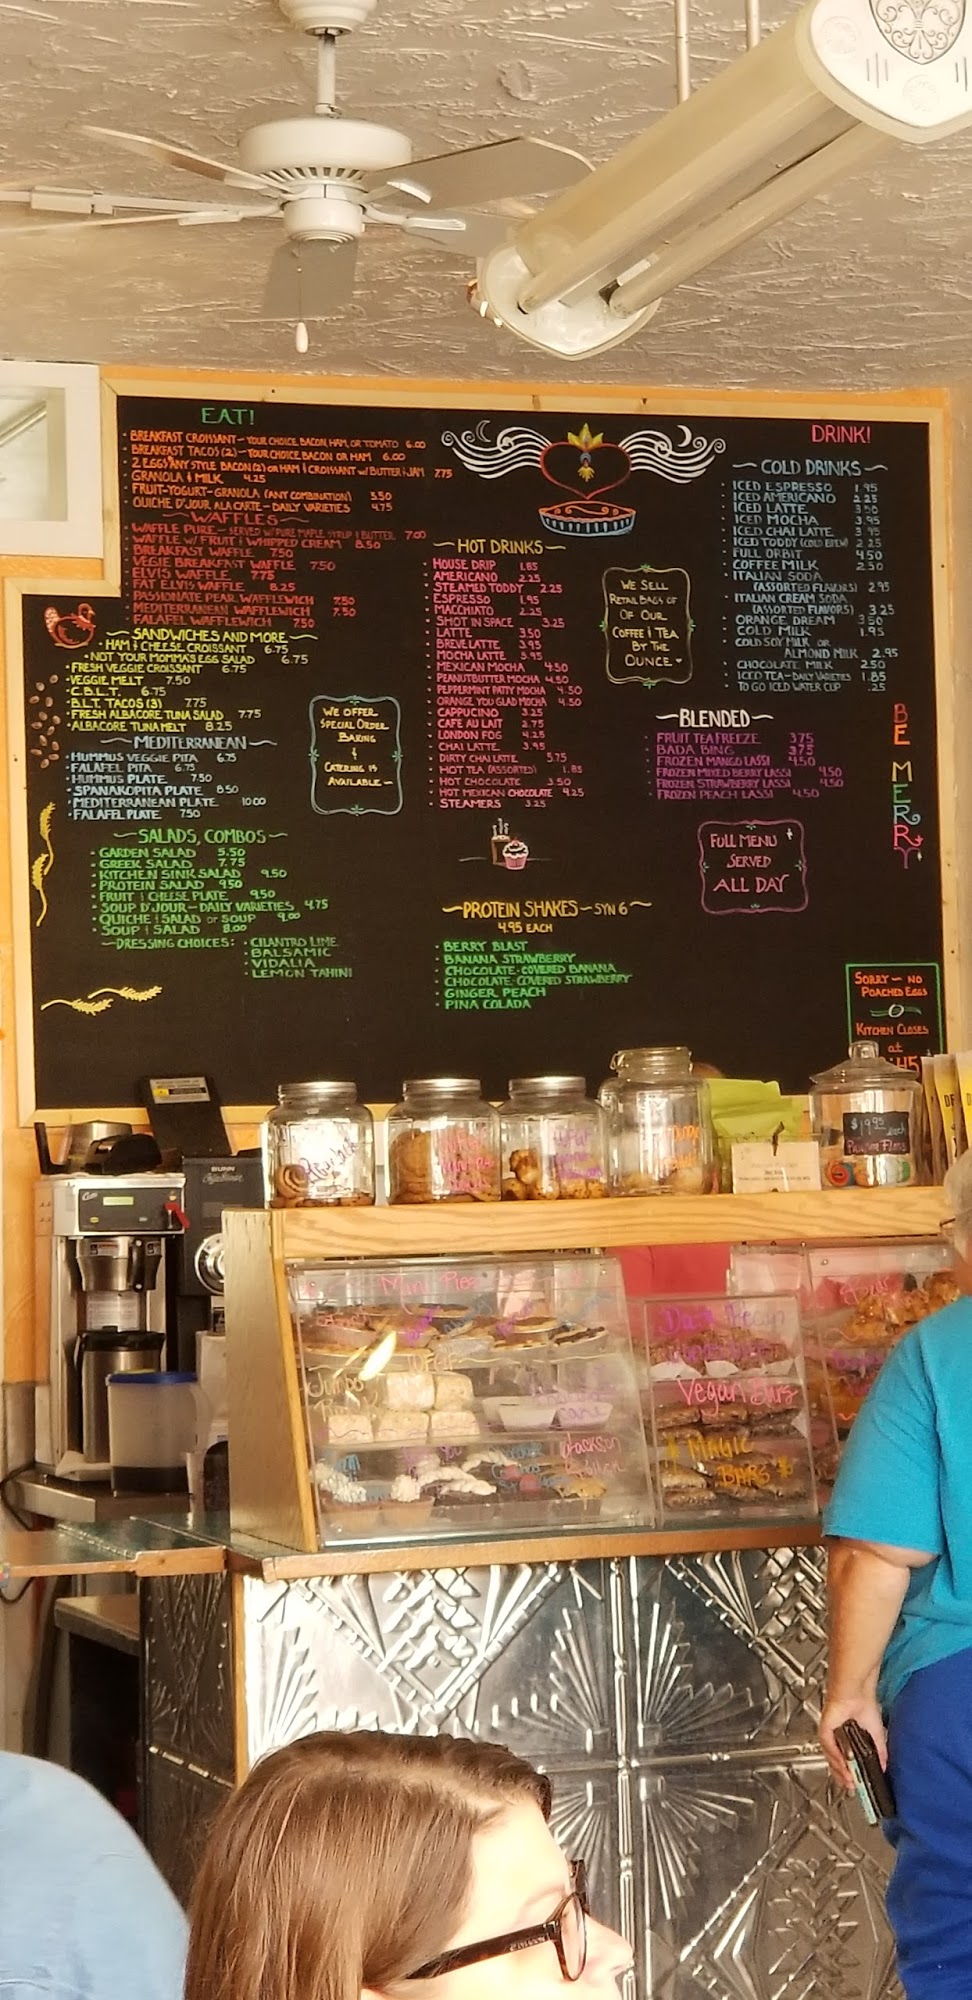 EAT!
BREAKFAST CROISSANT - YOUR CHOICE BACON, HAM, OR TOMATO 6.00
BREAKFAST TACOS (2) - YOUR CHOICE BACON OR HAM 6.00
2 EGGS ANY STYLE BACON (2) OR HAM & CROISSANT W/ BUTTER & JAM 7.75
GRANOLA & MILK 4.25
FRUIT-YOGURT-GRANOLA (ANY COMBINATION) 5.50
QUICHE D'JOUR ALA CARTE - DAILY VARIETIES 4.75
WAFFLES
WAFFLE PURE - SERVED W/ PURE MAPLE SYRUP & BUTTER 7.00
WAFFLE W/ FRUIT & WHIPPED CREAM 8.50
BREAKFASY WAFFLE 7.50
VEGIE BREAKFAST WAFFLE 7.50
ELVIS WAFFLE 7.75
FAT ELVIS WAFFLE 8.25
PASSIONATE PEAR WAFFLEWICH 7.50
MEDITERRANEAN WAFFLEWICH 7.50
FALAFEL WAFFLEWICH 7.50
SANDWICHES AND MORE
HAM & CHEESE CROISSANT 6.75
NOT YOUR MOMMA'S EGG SALAD 6.75
FRESH VEGGIE CROISSANT 6.75
VEGGIE MELT 7.50
C.B.L.T. 6.75
B.L.T. TACOS (3) 7.75
FRESH ALBACORE TUNA SALAD 7.75
ALBACORE TUNA MELT 8.25
MEDITERRANEAN
HUMMUS VEGGIE PITA 6.75
FALAFEL PITA 6.75
HUMMUS PLATE 7.50
SPANAKOPITA PLATE 8.50
MEDITERRANEAN PLATE 10.00
FALAFEL PLATE 7.50
SALADS, COMBOS
GARDEN SALAD 5.50
GREEK SALAD 7.75
KITCHEN SINK SALAD 9.50
PROTEIN SALAD 9.50
FRUIT & CHEESE PLATE 9.50
SOUP D'JOUR - DAILY VARIETIES 4.75
QUICHE & SALAD OR SOUP 9.00
SOUP & SALAD 8.00
DRESSING CHOICES: CILANTRO LIME
BALSAMIC
VIDALIA
LEMON TAHINI
WE OFFER
SPECIAL ORDER
BAKING
&
CATERING IS
AVAILABLE
HOT DRINKS
HOUSE DRIP 1.85
AMERICANO 2.25
STEAMED TODDY 2.25
ESPRESSO 1.95
MACCHIATO 2.25
SHOT IN SPACE 3.25
LATTE 3.50
BREVE LATTE 3.95
MOCHA LATTE 3.95
MEXICAN MOCHA 4.50
PEANUTBUTTER MOCHA 4.50
PEPPERMINT PATTY MOCHA 4.50
ORANGE YOU GLAD MOCHA 4.50
CAPPUCINO 3.25
CAFE AU LAIT 2.75
LONDON FOG 4.25
CHAI LATTE 3.95
DIRTY CHAI LATTE 5.75
HOT TEA (ASSORTED) 1.85
HOT CHOCOLATE 3.50
HOT MEXICAN CHOCOLATE 4.25
STEAMERS 3.25
PROTEIN SHAKES - SYN 6
4.95 EACH
BERRY BLAST
BANANA STRAWBERRY
CHOCOLATE-COVERED BANANA
CHOCOLATE-COVERED STRAWBERRY
GINGER PEACH
PINA COLADA
WE SELL
RETAIL BAGS OF
OF OUR
COFFEE & TEA
BY THE
OUNCE
DRINK!
COLD DRINKS
ICED ESPRESSO 1.95
ICED AMERICANO 2.25
ICED LATTE 3.50
ICED MOCHA 3.95
ICED CHAI LATTE 3.95
ICED TODDY (COLD BREW) 2.25
FULL ORBIT 4.50
COFFEE MILK 2.50
ITALIAN SODA
(ASSORTED FLAVORS) 2.95
ITALIAN CREAM SODA
(ASSORTED FLAVORS) 3.25
ORANGE DREAM 3.50
COLD MILK 1.95
COLD SOY MILK OR
ALMOND MILK 2.95
CHOCOLATE MILK 2.50
ICED TEA - DAILY VARIETIES 1.85
TO GO ICED WATER CUP .25
BLENDED
FRUIT TEA FREEZE 3.75
BADA BING 3.75
FROZEN MANGO LASSI 4.50
FROZEN MIXED BERRY LASSI 4.50
FROZEN STRAWBERRY LASSI 4.50
FROZEN PEACH LASSI 4.50
FULL MENU
SERVED
ALL DAY
BE MERRY
SORRY - NO
POACHED EGGS
KITCHEN CLOSES
at
:45
$19.95 each
BUNN
Curtis
Mini Pies
Jumbo
Dark Pecan
Vegan Bars
MAGIC
BARS